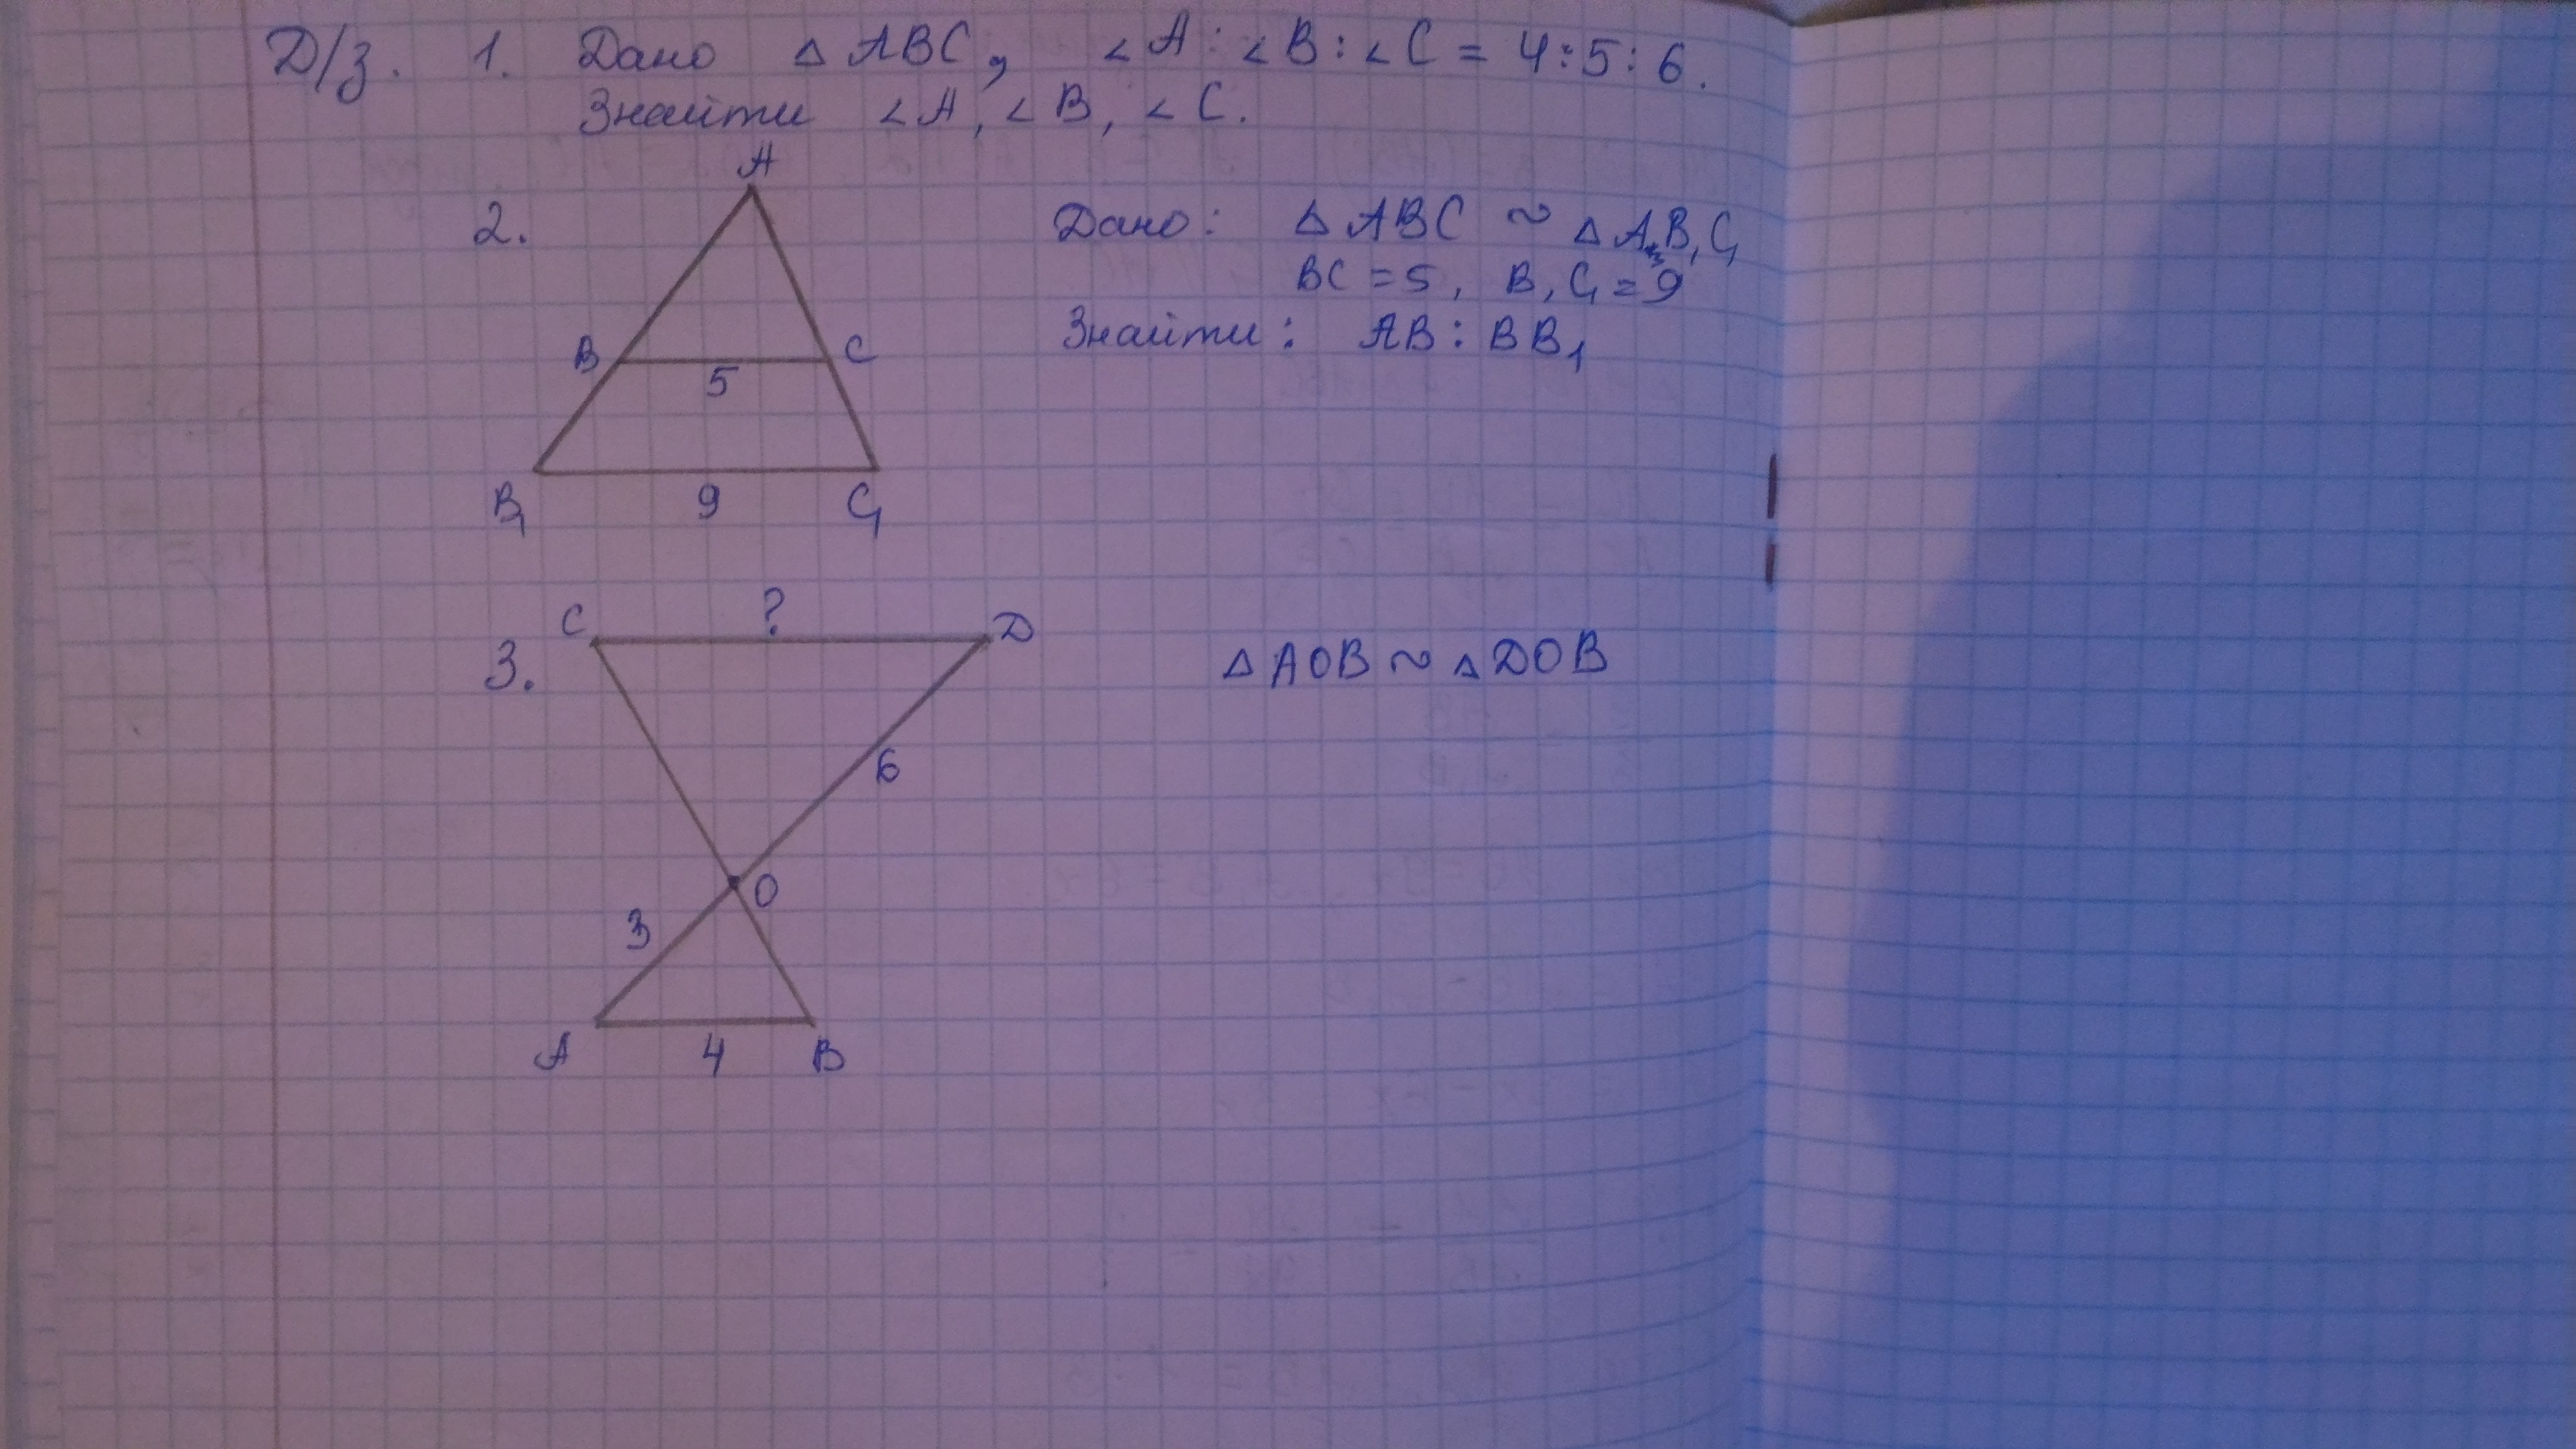 Д/з. 1. Дано △ ABC, ∠A : ∠B : ∠C = 4 : 5 : 6.
Знайти ∠A, ∠B, ∠C.
2.
A
B
C
5
B₁
9
C₁
Дано: △ ABC ~ △ AB₁C₁
BC = 5, B₁C₁ = 9
Знайти: AB : BB₁
3.
C
?
D
6
O
3
A
4
B
△ AOB ~ △ DOB